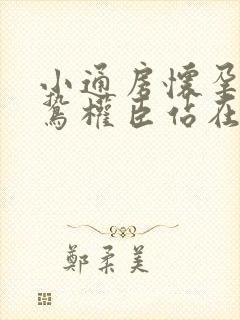 小通房懷孕
鷙權臣佔在
鄭柔美